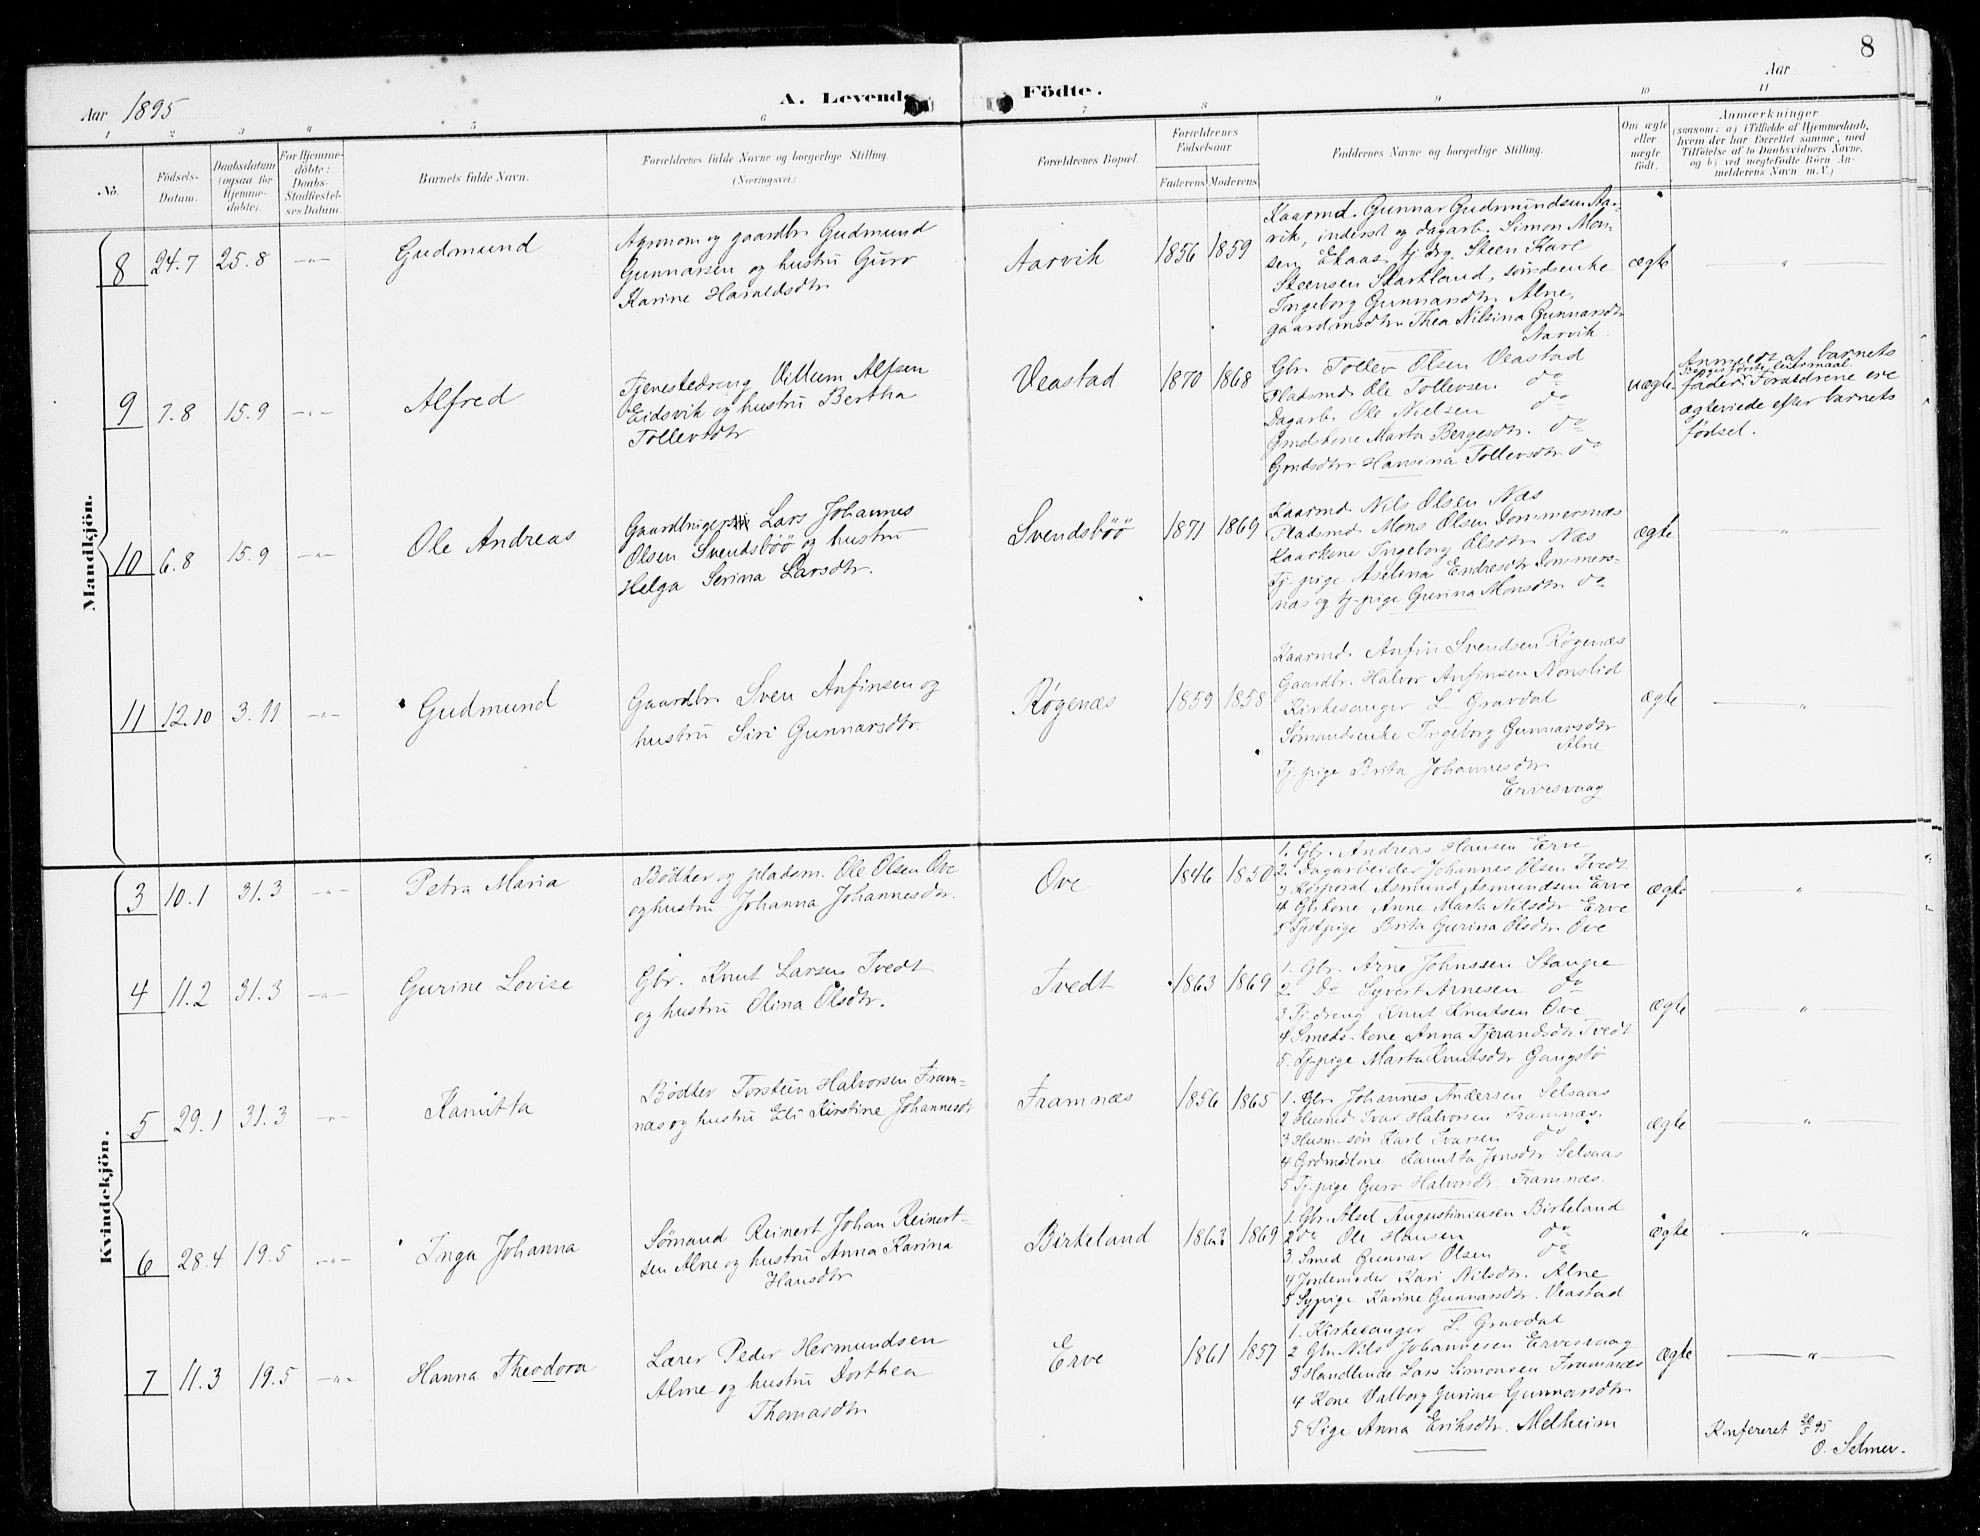 8
Aar 1895
A. Levende Födte.
Aar
1 2 3 4 5 6 7 8 9 10 11
No.
Födsels-Datum.
Daabsdatum (ogsaa for Hjemmedöbte).
For Hjemmedöbte: Daabs-Stadfestelses Datum.
Barnets fulde Navn.
Forældrenes fulde Navne og borgerlige Stilling. (Næringsvei.)
Forældrenes Bopæl.
Forældrenes Födselsaar.
Faderens. Moderens.
Faddernes Navne og borgerlige Stilling.
Om ægte eller uægte født.
Anmærkninger
(saasom: a) i Tilfælde af Hjemmedaab, hvem der har forrettet samme, med Tilföielse af to Daabsvidners Navne, og b) ved uægtefödte Börn Anmelderens Navn m.V.)
Mandkjön.
8 24.7 25.8 -"- Gudmund
Agronom og gaardbr. Gudmund
Gunnarsen og hustru Guro
Karine Haraldsdtr.
Aarvik 1856 1859
Kaarmd. Gunnar Gudmundsen Aar-
vik, inderst og dagarb. Simon Mon-
sen Ekaas, tj. drg. Steen Kare
Steensen Skartland, sömdsenke
Ingeborg Gunnarsdtr. Alne,
gaardmsdtr. Thea Nilsina Gunnarsdtr
Aarvik.
ægte "
9 7.8 15.9 -"- Alfred
Tjenestedreng Villum Alfsen
Eidsvik og hustru Bertha
Tollevsdtr
Veastad 1870 1868
Gbr. Tollev Olsen Veastad
Pladsmd. Ole Tollevsen do
Dagarb. Ole Nielsen do
Gmdskone Marta Bergesdtr. do
Gmdsdtr. Hansina Tollevsdtr do
uægte
Anmeldt af barnets
Begges förste leiermaal.
fader. Forældrene ere
ægteviede efter barnets
födsel.
10 6.8 15.9 -"- Ole Andreas
Gaardbruger Lars Johannes
Olsen Svendsböö og hustru
Helga Serina Larsdtr.
Svendsböö 1871 1869
Kaarmd Nils Olsen Næs
Pladsmd Mons Olsen Dommersnæs
Kaarkone Ingeborg Olsdtr Næs
Tj. pige Aselina Endresdtr Dommers-
næs og tj. pige Gurina Monsdtr do
ægte "
11 12.10 3.11 -"- Gudmund
Gaardbr. Sven Anfinsen og
hustru Siri Gunnarsdtr.
Røgenæs 1859 1858
Kaarmd. Anfin Svendsen Røgenæs
Gaardbr. Halvor Anfinsen Nonslid
Kirkesanger L. Gravdal
Sømandsenke Ingeborg Gunnarsdtr
Alne
Tj. pige Brita Johannesdtr
Ervesvaag
ægte "
Kvindekjön.
3 10.1 31.3 -"- Petra Maria
Bödker og pladsm. Ole Olsen Ove
og hustru Johanna Johannesdtr.
Ove 1846 1850
1. Gbr. Andreas Hansen Erve
2. Dagarbeider Johannes Olsen Tvedt
3 Korporal Asmund Asmundsen Erve
4 Gbrkone Anne Marta Nilsdtr Erve
5 Tjstpige Brita Gurina Olsdtr Ove
ægte "
4 11.2 31.3 -"- Gurine Lovise
Gbr. Knut Larsen Tvedt
og hustru Olina Olsdtr.
Tvedt 1863 1869
1. Gbr. Arne Johnssen Staupe
2. Do Syvert Arnesen do
3 Tj. dreng Knut Knutsen Ove
4 Smeds-kone Anna Tjerandsdtr Tvedt
5. Tj-pige Marta Knutsdtr Gangstö
ægte "
5 29.1 31.3 -"- Kamitta
Bödker Torstein Halvorsen Fram-
næs og hustru Eli Kirstine Johannesdtr
Framnæs 1856 1865
1. Gbr. Johannes Andersen Selsaas
2 Husmd Ivar Halvorsen Framnæs.
3 Husm-sön Karl Ivarsen do
4 Grdmdkone Kamitta Jonsdtr Selsaas
5 Tj. pige Guro Halvorsdtr. Framnæs.
ægte "
6 28.4 19.5 -"- Inga Johanna
Sømand Reinert Johan Reinert-
sen Alne og hustru Anna Karina
Hansdtr
Birkeland 1863 1869
1. Gbr. Aksel Augustiniusen Birkeland
2 do Ole Hansen do
3. Smed Gunnar Olsen do
4 Jordemoder Kari Nilsdtr. Alne
5 Sypige Karine Gunnarsdtr. Veastad
ægte "
7 11.3 19.5 -"- Hanna Theodora
Lærer Peder Hermundsen
Alne og hustru Dorthea
Thomasdtr
Erve 1861 1857
1. Kirkesanger L. Gravdal
2 Gbr. Nils Johannesen Ervesvaag
3 Handlende Lars Simonsen Framnæs
4 Kone Valborg Gurine Gunnarsdtr
5 Pige Anna Eriksdtr. Melheim
ægte "
Konfereret 20/5 95
O. Selmer.